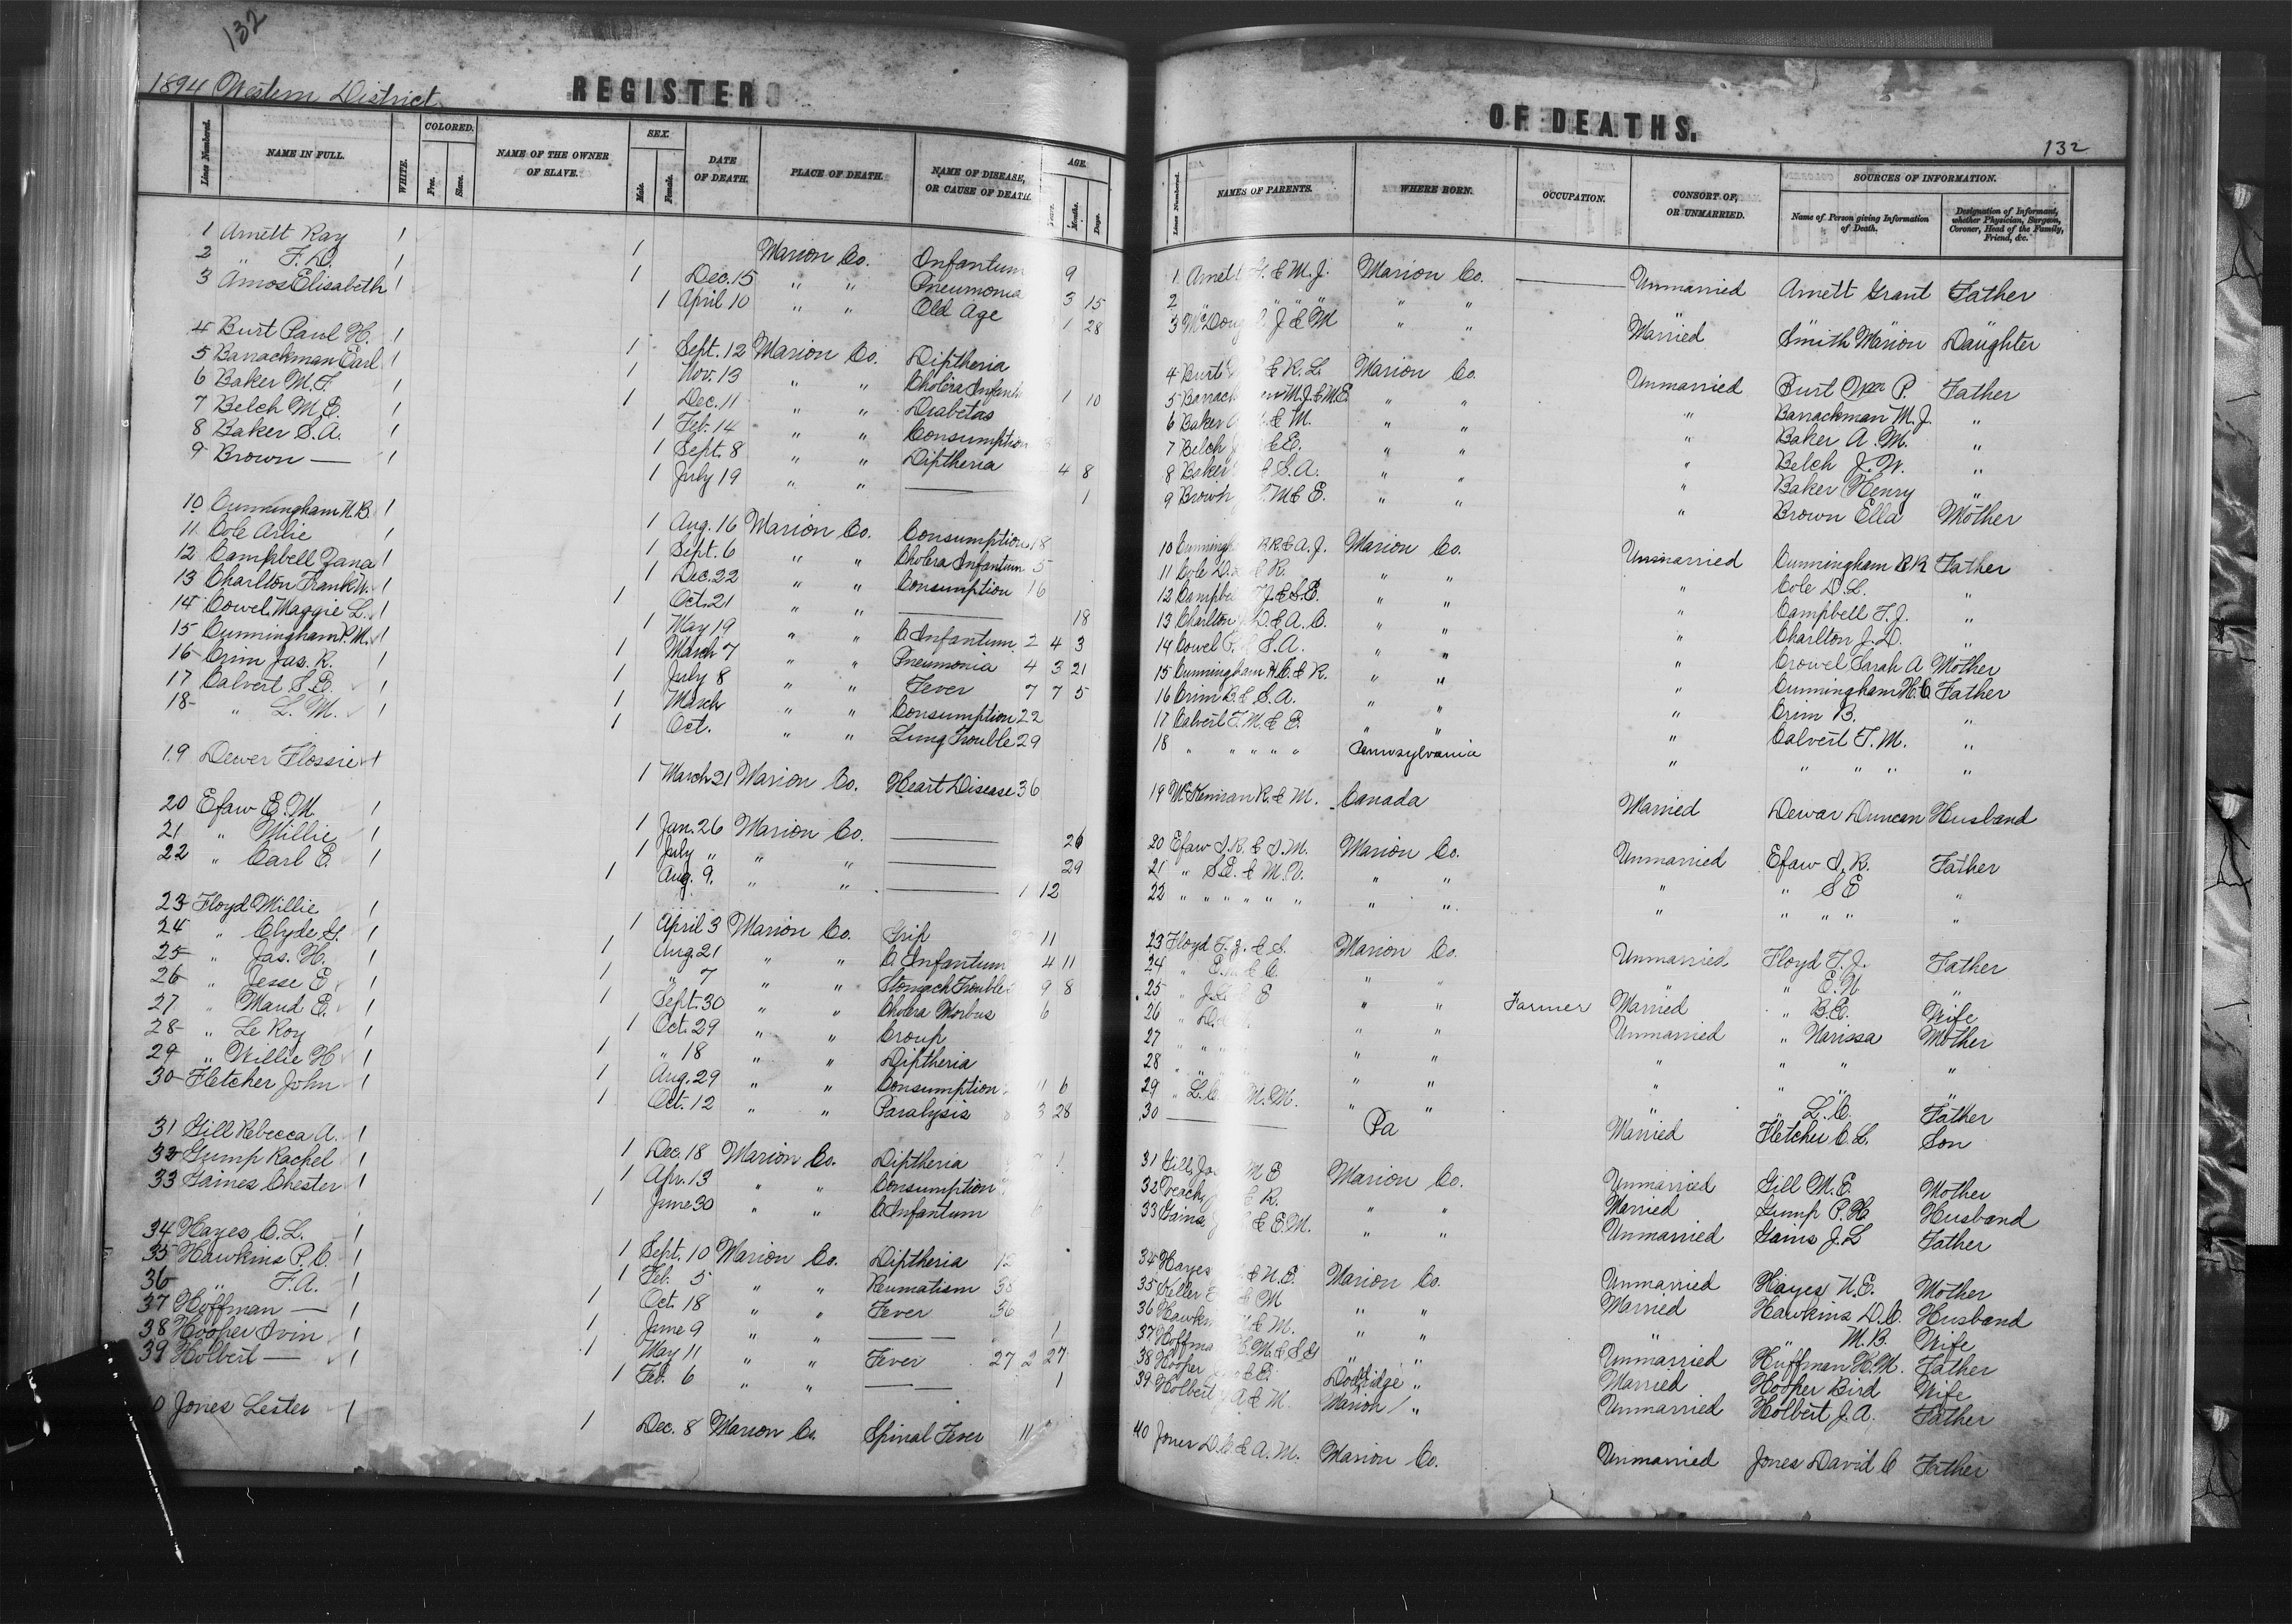 132
1894 Western District
REGISTER
Lines Numbered.
NAME IN FULL.
WHITE.
COLORED.
Free.
Slave.
NAME OF THE OWNER
OF SLAVE.
SEX.
Male.
Female.
DATE
OF DEATH.
PLACE OF DEATH.
NAME OF DISEASE,
OR CAUSE OF DEATH.
AGE.
Months.
Days.
1 Arnett Ray 1 1 Marion Co. Infantum 9
2 " F. D. 1 1 Dec. 15 " " Pneumonia 3 15
3 Amos Elisabeth 1 1 April 10 " " Old Age 1 28
4 Burt Paul H. 1 1 Sept. 12 Marion Co. Diptheria
5 Barrackman Earl 1 1 Nov. 13 " " Cholera Infant 1 10
6 Baker M. F. 1 1 Dec. 11 " " Diabetas
7 Belch M. E. 1 1 Feb. 14 " " Consumption
8 Baker S. A. 1 1 Sept. 8 " " Diptheria 4 8
9 Brown — 1 1 July 19 " " — 1
10 Cunningham N. B. 1 1 Aug. 16 Marion Co. Consumption 18
11 Cole Arlie 1 1 Sept. 6 " " Cholera Infantum 5
12 Campbell Zana 1 1 Dec. 22 " " Consumption 16
13 Charlton Frank W. 1 1 Oct. 21 " " — 18
14 Cowel Maggie L. 1 1 May 19 " " C. Infantum 2 4 3
15 Cunningham P. M. 1 1 March 7 " " Pneumonia 4 3 21
16 Crim Jas. R. 1 1 July 8 " " Fever 7 7 5
17 Calvert S. B. 1 1 March " " Consumption 22
18 " L. M. 1 1 Oct. " " Lung Trouble 29
19 Dewer Flossie 1 1 March 21 Marion Co. Heart Disease 36
20 Efaw E. M. 1 1 Jan. 26 Marion Co. — 26
21 " Millie 1 1 July " " " — 29
22 " Carl E. 1 1 Aug. 9. " " — 1 12
23 Floyd Millie 1 1 April 3 Marion Co. Grip 11
24 " Clyde G. 1 1 Aug. 21 " " C. Infantum 4 11
25 " Jas. H. 1 1 " 7 " " Stomach Trouble 9 8
26 " Jesse E 1 1 Sept. 30 " " Cholera Morbus 6
27 " Maud E. 1 1 Oct. 29 " " Croup
28 " Le Roy 1 1 " 18 " " Diptheria
29 " Willie H 1 1 Aug. 29 " " Consumption 11 6
30 Fletcher John 1 1 Oct. 12 " " Paralysis 3 28
31 Gill Rebecca A. 1 1 Dec. 18 Marion Co. Diptheria
32 Gump Rachel 1 1 Apr. 13 " " Consumption
33 Gaines Chester 1 1 June 30 " " C. Infantum
34 Hayes C. L. 1 1 Sept. 10 Marion Co. Diptheria 12
35 Hawkins P. C. 1 1 Feb. 5 " " Reumatism 38
36 " F. A. 1 1 Oct. 18 " " Fever 56
37 Hoffman — 1 1 June 9 " " — 1
38 Hooper Ivin 1 1 May 11 " " Fever 27 2 27
39 Holbert — 1 1 Feb. 6 " " — 1
0 Jones Lester 1 1 Dec. 8 Marion Co. Spinal Fever 11
OF DEATHS.
132
Lines Numbered.
NAMES OF PARENTS.
WHERE BORN.
OCCUPATION.
CONSORT OF,
OR UNMARRIED.
SOURCES OF INFORMATION.
Name of Person giving Information
of Death.
Designation of Informant,
whether Physician, Surgeon,
Coroner, Head of the Family,
Friend, &c.
1 Arnett G. & M. J. Marion Co. — Unmarried Arnett Grant Father
2 " " " " " " " " "
3 McDoug J. & M " " Married Smith Marion Daughter
4 Burt & R. L. Marion Co. Unmarried Burt Wm P. Father
5 Barrack M. J. & M. E. " " " Barrackman M. J. "
6 Baker & M. " " " Baker A. M. "
7 Belch J & E. " " " Belch J. W. "
8 Baker & S. A. " " " Baker Henry "
9 Brown M & E. " " " Brown Ella Mother
10 Cunningh R. R. & A. J. Marion Co. Unmarried Cunningham R R Father
11 Cole D. & R. " " " Cole D. L. "
12 Campbel T. J. & S. E. " " " Campbell T. J. "
13 Charlton J. D. & A. C. " " " Charlton J. D. "
14 Cowel P. & S. A. " " " Crowel Sarah A Mother
15 Cunningham H. C. & R. " " " Cunningham H. C Father
16 Crim B. & S. A. " " " Crim B. "
17 Calvert T. M. & E. " " " Calvert T. M. "
18 " " " " " Pennsylvania " " " " "
19 McKennan R. & M. Canada Married Dewar Duncan Husband
20 Efaw I. R. & I. M. Marion Co. Unmarried Efaw I. R. Father
21 " S. E. & M. V. " " " " S E "
22 " " " " " " " " " " " " "
23 Floyd T. J. & S. Marion Co. Unmarried Floyd T. J. Father
24 " E. N. & C. " " " " E. N. "
25 " J. L. & E " " Farmer Married " B. E. Wife
26 " D. & " " Unmarried " Narissa Mother
27 " " " " " " " " "
28 " " " " " " " " "
29 " L. C. M. M. " " " L. C. Father
30 — Pa Married Fletcher C. L. Son
31 Gill Jas M E Marion Co. Unmarried Gill M. E. Mother
32 Veach & R. " " Married Gump P. H. Husband
33 Gains J & E. M. " " Unmarried Gains J. L Father
34 Hayes & N. E. Marion Co. Unmarried Hayes N. E. Mother
35 Keller & M " " Married Hawkins D. C. Husband
36 Hawkin & M. " " " " M. B. Wife
37 Hoffma H. M. & S. G " " Unmarried Huffman H. M. Father
38 Hooper & E. Doddridge " Married Hooper Bird Wife
39 Holbert J A & M. Marion " Unmarried Holbert J. A. Father
40 Jones D. C. & A. M. Marion Co. Unmarried Jones David C Father